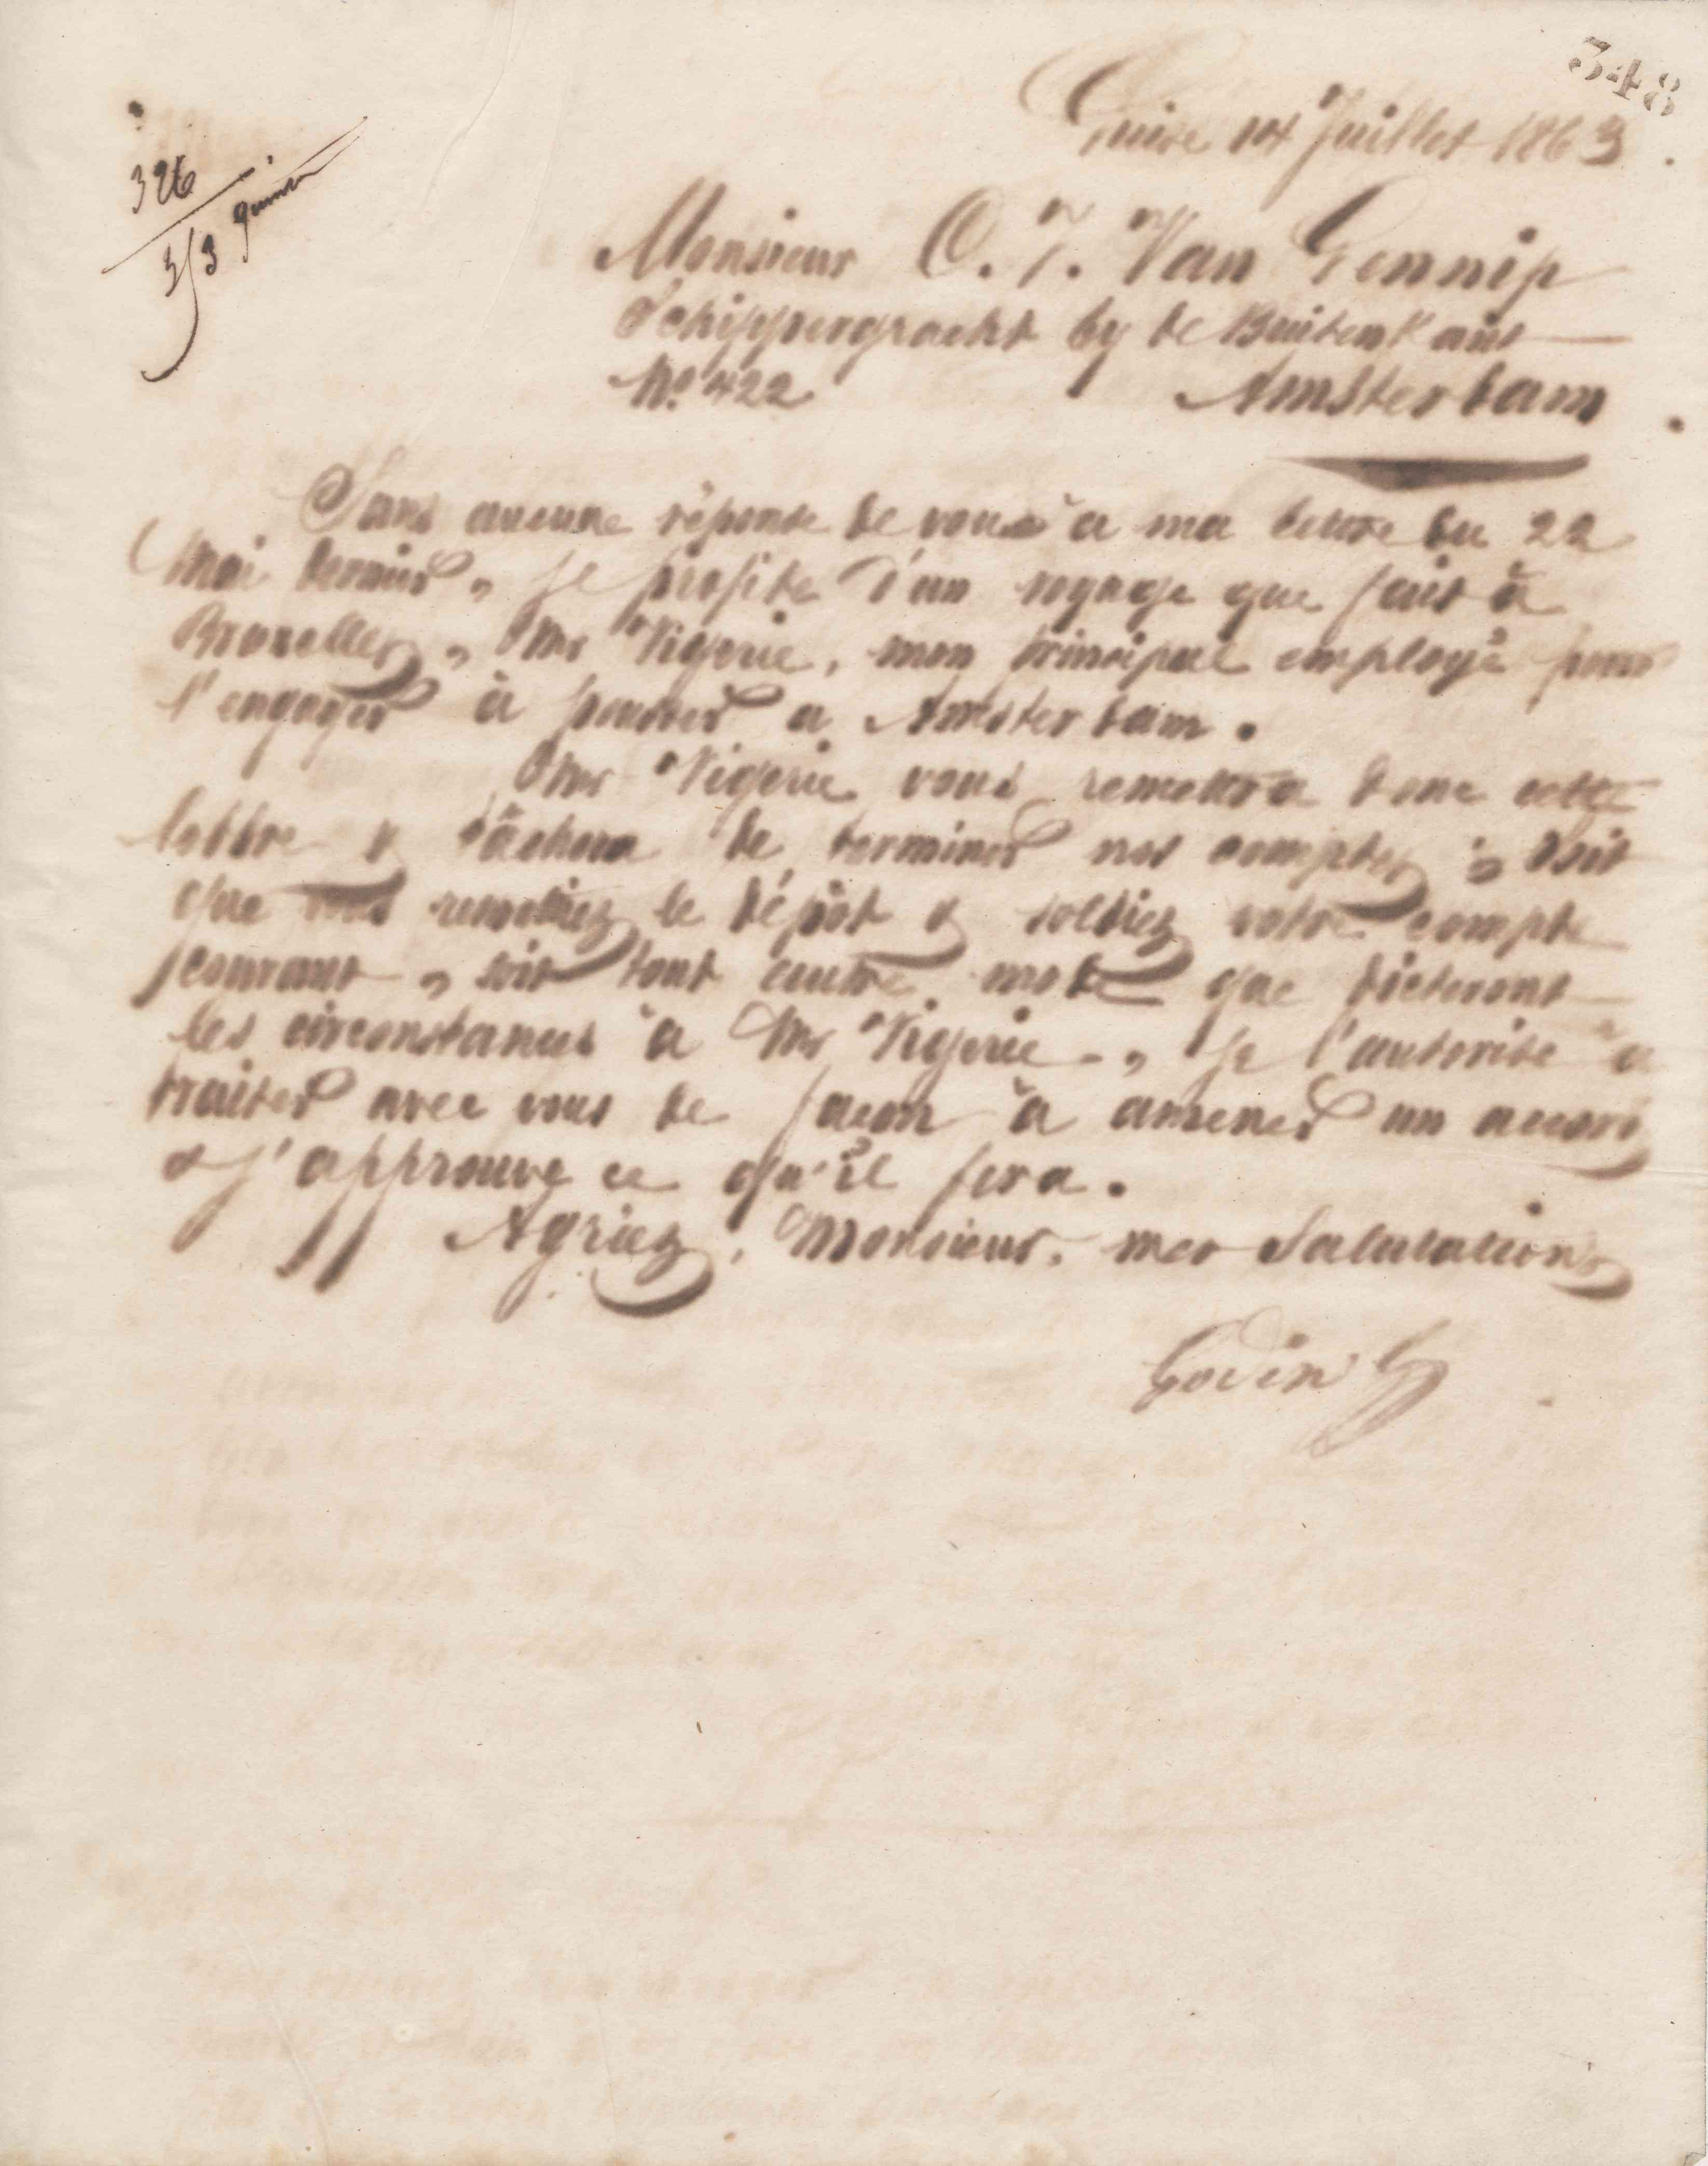 348
326
313
Guise 14 Juillet 1863
Monsieur C. J. Van Gennip
Schippergracht by de Buitenkant
N° 422 Amsterdam
Sans aucune réponse de vous à ma lettre du 22
Mai dernier, je profite d'un voyage que fait à
Bruxelles, Mr Vigerie, mon principal employé pour
l'engager à pousser à Amsterdam.
Mr Vigerie vous remettra donc cette
lettre & tâchera de terminer nos comptes ; soit
que vous remettiez le dépôt & soldiez votre compte
courant, soit tout autre mode que dicteront
les circonstances à Mr Vigerie, je l'autorise à
traiter avec vous de façon à amener un accord
& j'approuve ce qu'il fera.
Agréez, Monsieur, mes Salutations
Godin